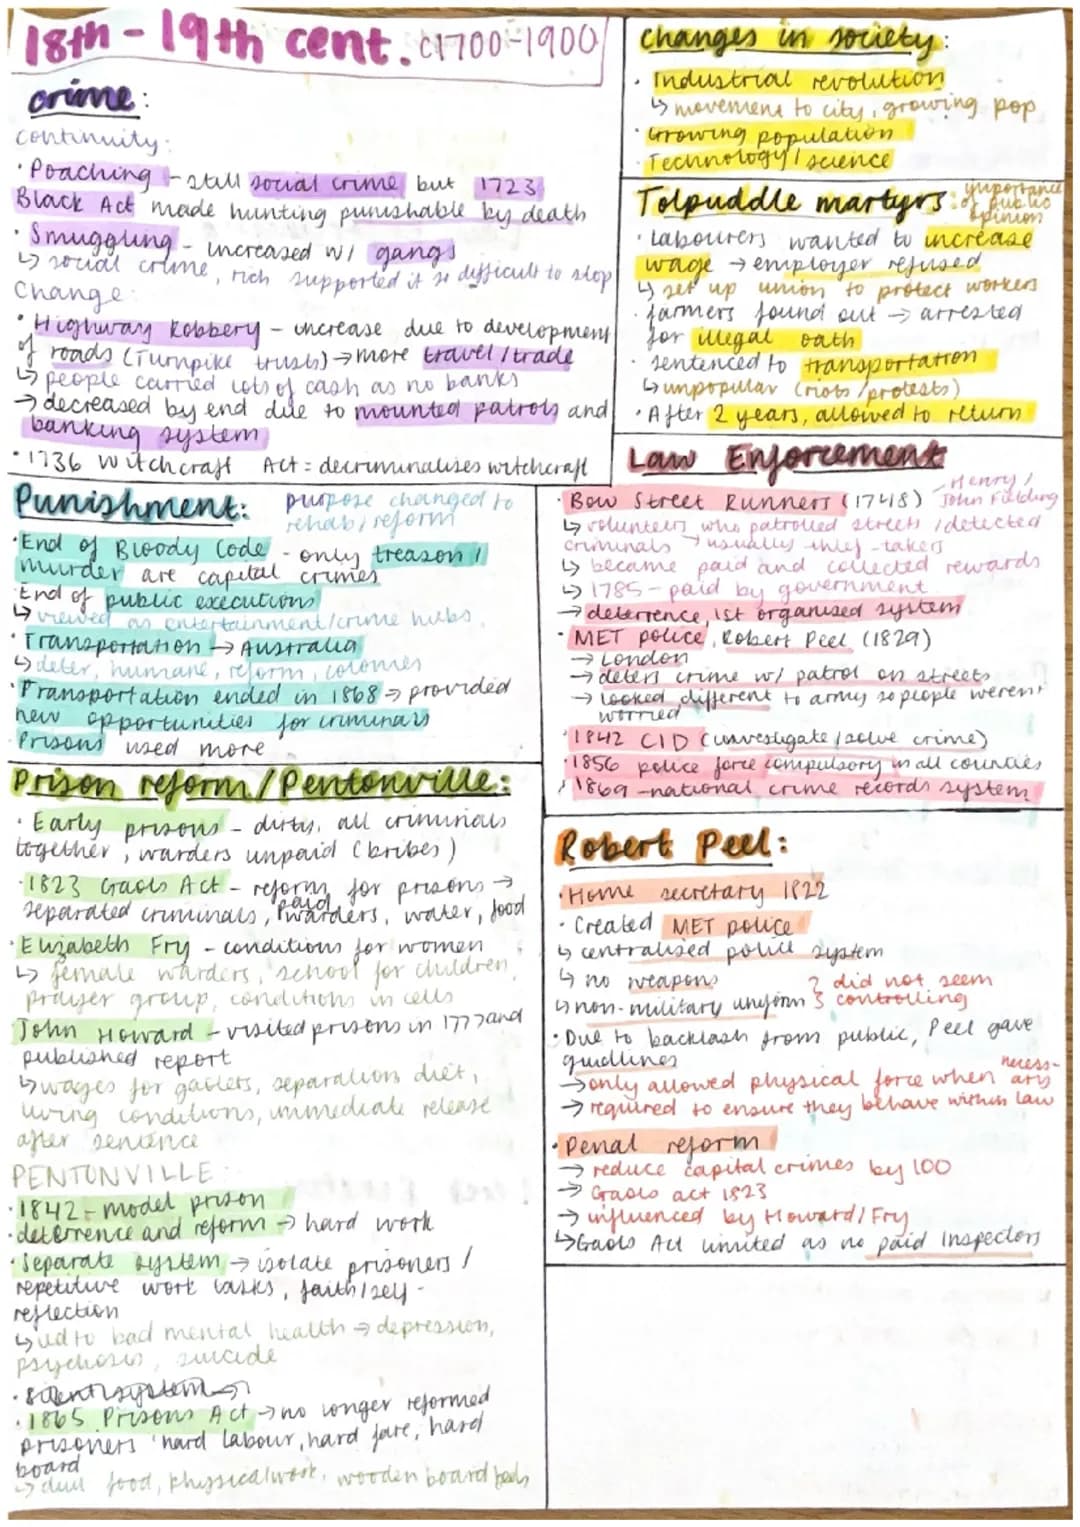 18th - 19th cent. c1700-1900
crime:
continuity:
· Poaching - still social crime but 1723
Black Act made hunting punishable by death
· Smuggling - increased w/ gangs
↳ social crime, rich supported it so difficult to stop
Change:
· Highway Robbery - increase due to development
of roads (Turnpike trusts) → more travel/trade
↳ people carried lots of cash as no banks
→ decreased by end due to mounted patrols and
banking system
· 1736 Witchcraft Act = decriminalises witchcraft
Punishment: purpose changed to
rehab/reform
· End of Bloody Code - only treason/
murder are capital crimes
· End of public executions
↳ viewed as entertainment/crime hubs
· Transportation → Australia
↳ deter, humane, reform, colonies
· Transportation ended in 1868 → provided
new opportunities for criminals
· Prisons used more
Prison reform/Pentonville:
· Early prisons - dirty, all criminals
together, warders unpaid (bribes)
· 1823 Gaols Act - reform for prisons →
separated criminals, paid warders, water, food
· Elizabeth Fry - conditions for women
↳ female warders, school for children,
prayer group, conditions in cells
John Howard - visited prisons in 1777 and
published report
↳ wages for gaolers, separation, diet,
living conditions, immediate release
after sentence
PENTONVILLE:
· 1842 - model prison
· deterrence and reform → hard work
· Separate system → isolate prisoners/
repetitive work tasks, faith/self-
reflection
↳ led to bad mental health → depression,
psychosis, suicide
· silent system →
· 1865 Prisons Act → no longer reformed
prisoners 'hard labour, hard fare, hard
board
↳ dull food, physical work, wooden board beds
changes in society:
· Industrial revolution
↳ movement to city, growing pop
· Growing population
· Technology/science
Tolpuddle martyrs: importance
of public
opinion
· Labourers wanted to increase
wage → employer refused
↳ set up union to protect workers
· farmers found out → arrested
for illegal oath
· sentenced to transportation
↳ unpopular (riots/protests)
· After 2 years, allowed to return
Law Enforcement
· Bow Street Runners (1748) - Henry/
John Fielding
↳ volunteers who patrolled streets/detected
criminals → usually thief-takers
↳ became paid and collected rewards
↳ 1785 - paid by government
→ deterrence, 1st organised system
· MET police, Robert Peel (1829)
→ London
→ deters crime w/ patrol on streets
→ looked different to army so people weren't
worried
· 1842 CID (investigate/solve crime)
· 1856 police force compulsory in all counties
· 1869 - national crime records system
Robert Peel:
· Home secretary 1822
· Created MET police
↳ centralised police system
↳ no weapons
↳ non-military uniform } did not seem
controlling
· Due to backlash from public, Peel gave
guidlines
→ only allowed physical force when necess-
ary
→ required to ensure they behave within law
· Penal reform
→ reduce capital crimes by 100
→ Gaols act 1823
→ influenced by Howard/Fry
↳ Gaols Act limited as no paid Inspectors